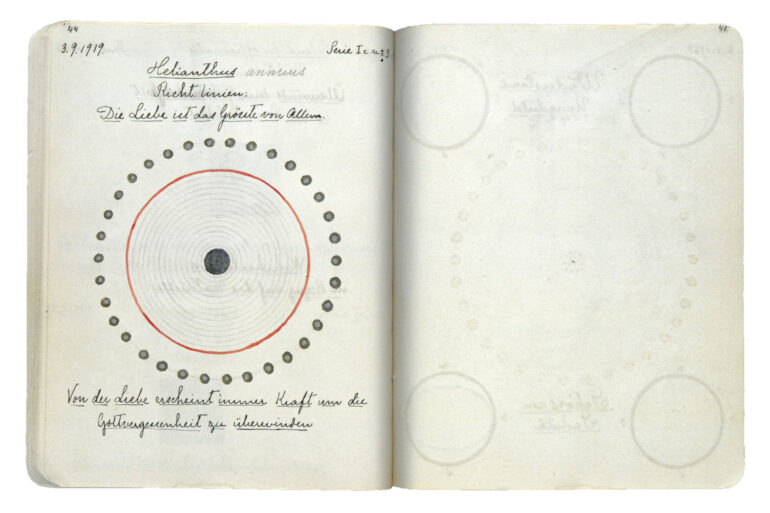 44
3.9.1919.
Serie I c n:o 3
Helianthus annuus
Richt linien:
Die Liebe ist das Grösste von Allem.
Von der Liebe erscheint immer Kraft um die
Gottvergessenheit zu überwinden
45